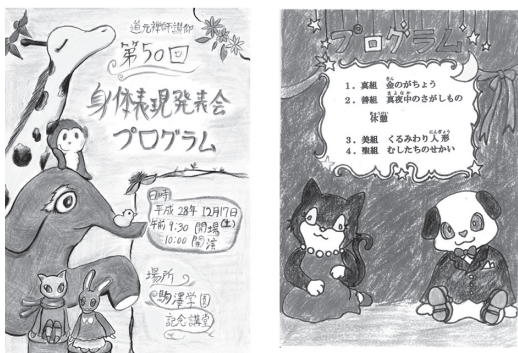 道元禅師講仰
第50回
身体表現発表会
プログラム
日時
平成28年12月17日(土)
午前9:30 開場
10:00 開演
場所
駒澤学園
記念講堂
プログラム
1.真組 金のがちょう
きん
2.善組 真夜中のさがしもの
まよなか
休憩
きゅうけい
3.美組 くるみわり人形
にんぎょう
4.聖組 むしたちのせかい